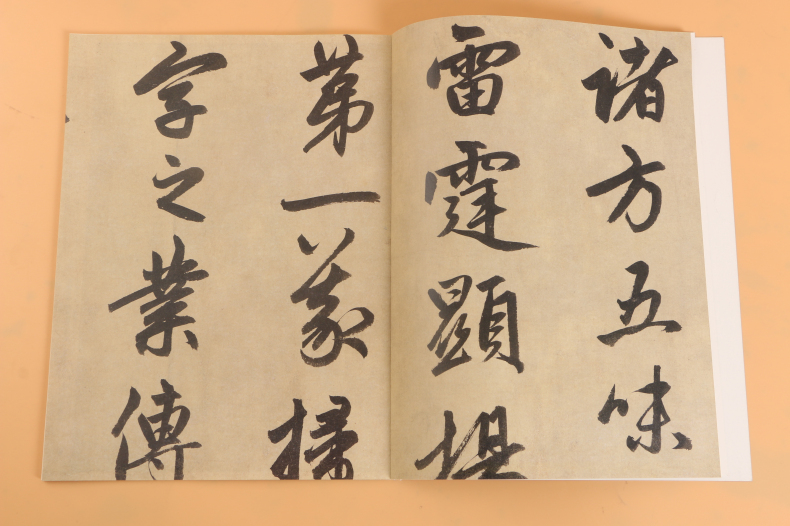 諸方五味
雷霆顯
第一義掃
字之業傳